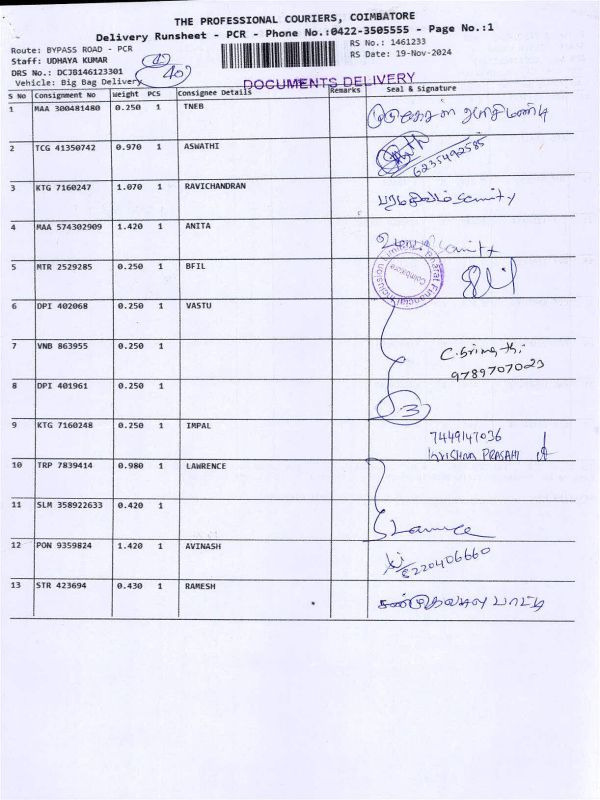 THE PROFESSIONAL COURIERS, COIMBATORE
Delivery Runsheet - PCR - Phone No.:0422-3505555 - Page No.:1
Route: BYPASS ROAD - PCR
RS No.: 1461233
Staff: UDHAYA KUMAR
RS Date: 19-Nov-2024
DRS No.: DCJB146123301
40
Vehicle: Big Bag Delivery
DOCUMENTS DELIVERY
S No Consignment No Weight PCS Consignee Details Remarks Seal & Signature
1 MAA 300481480 0.250 1 TNEB
2 TCG 41350742 0.970 1 ASWATHI
6235492585
3 KTG 7160247 1.070 1 RAVICHANDRAN
4 MAA 574302909 1.420 1 ANITA
5 MTR 2529285 0.250 1 BFIL
Bharat Financial Inclusion Limited
Coimbatore
6 DPI 402068 0.250 1 VASTU
7 VNB 863955 0.250 1
9789707023
8 DPI 401961 0.250 1
3
9 KTG 7160248 0.250 1 IMPAL
7449147036
10 TRP 7839414 0.980 1 LAWRENCE
11 SLM 358922633 0.420 1
12 PON 9359824 1.420 1 AVINASH
13 STR 423694 0.430 1 RAMESH